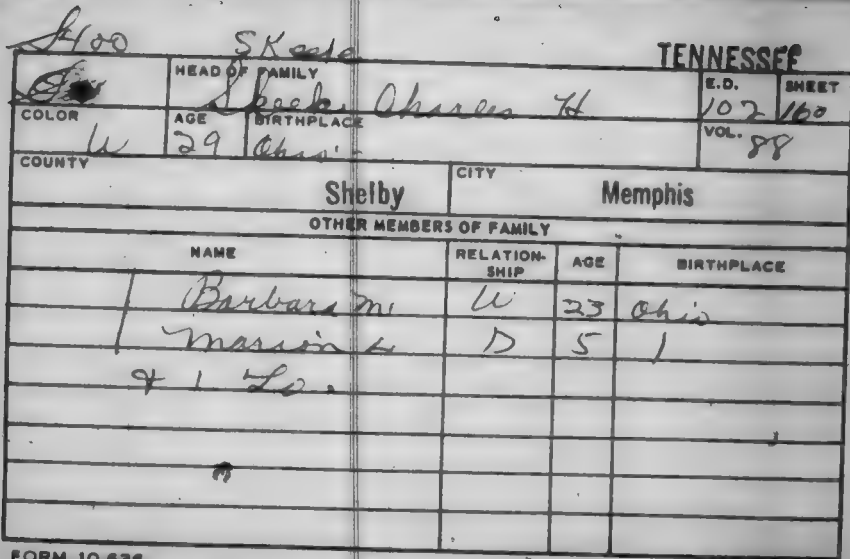 S400 TENNESSEE
HEAD OF FAMILY E.D. SHEET
Charles H 102 160
COLOR AGE BIRTHPLACE VOL.
W 29 Ohio 88
COUNTY CITY
Shelby Memphis
OTHER MEMBERS OF FAMILY
NAME RELATION-SHIP AGE BIRTHPLACE
Barbara M. W 23 Ohio
Marion L D 5 /
& 1 Lo.
FORM 10-636